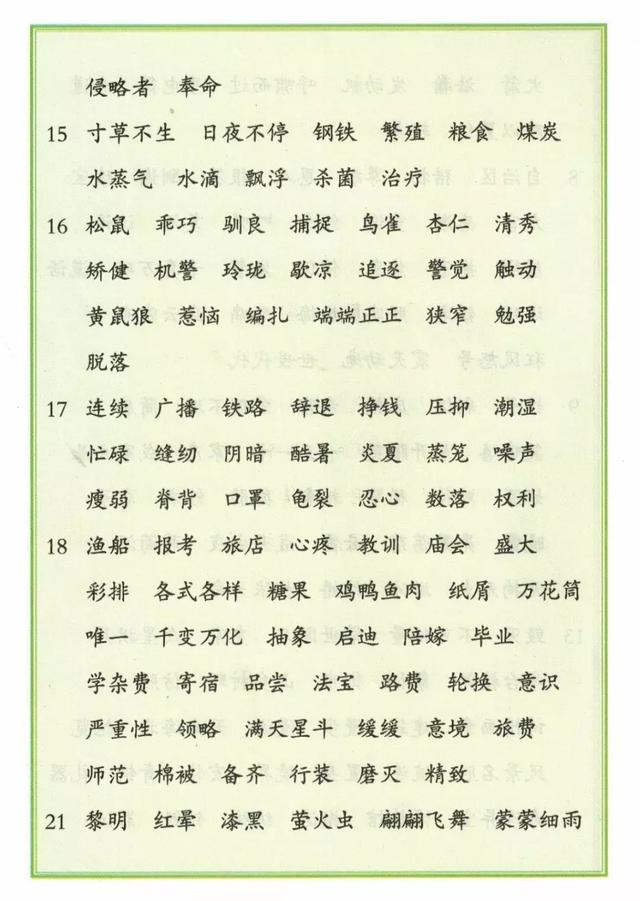 侵略者 奉命
15 寸草不生 日夜不停 钢铁 繁殖 粮食 煤炭
水蒸气 水滴 飘浮 杀菌 治疗
16 松鼠 乖巧 驯良 捕捉 鸟雀 杏仁 清秀
矫健 机警 玲珑 歇凉 追逐 警觉 触动
黄鼠狼 惹恼 编扎 端端正正 狭窄 勉强
脱落
17 连续 广播 铁路 辞退 挣钱 压抑 潮湿
忙碌 缝纫 阴暗 酷暑 炎夏 蒸笼 噪声
瘦弱 脊背 口罩 龟裂 忍心 数落 权利
18 渔船 报考 旅店 心疼 教训 庙会 盛大
彩排 各式各样 糖果 鸡鸭鱼肉 纸屑 万花筒
唯一 千变万化 抽象 启迪 陪嫁 毕业
学杂费 寄宿 品尝 法宝 路费 轮换 意识
严重性 领略 满天星斗 缓缓 意境 旅费
师范 棉被 备齐 行装 磨灭 精致
21 黎明 红晕 漆黑 萤火虫 翩翩飞舞 蒙蒙细雨